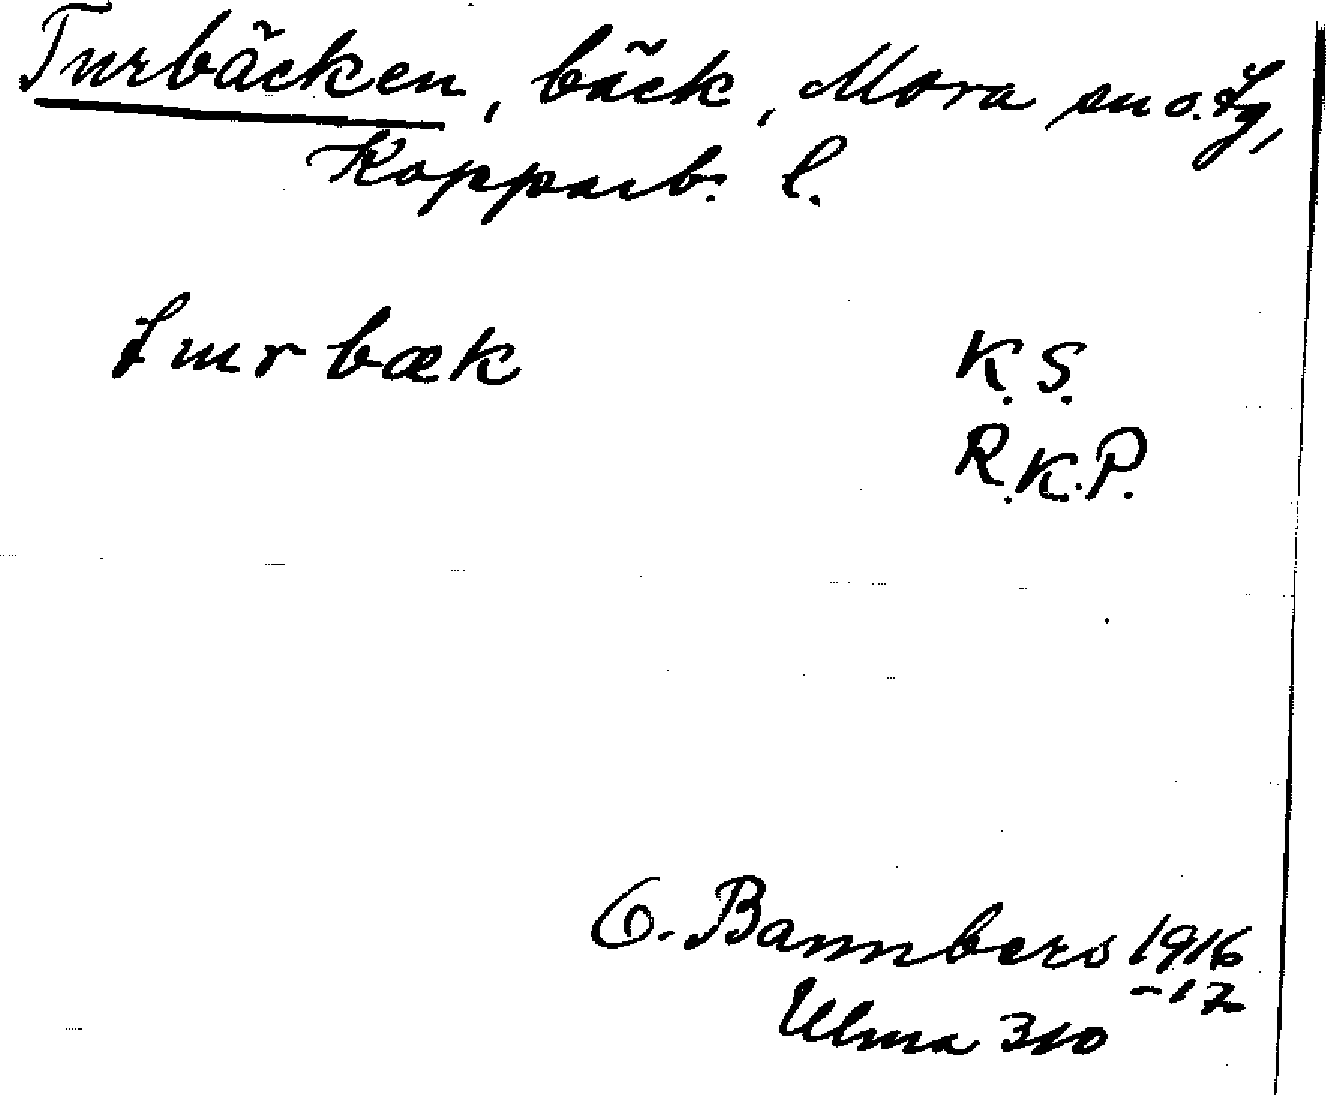 Turbäcken, bäck, Mora sn o. tg,
Kopparb. l.
turbæk K.S.
R.K.P.
O. Bannbers 1916
-17
Ulma 310